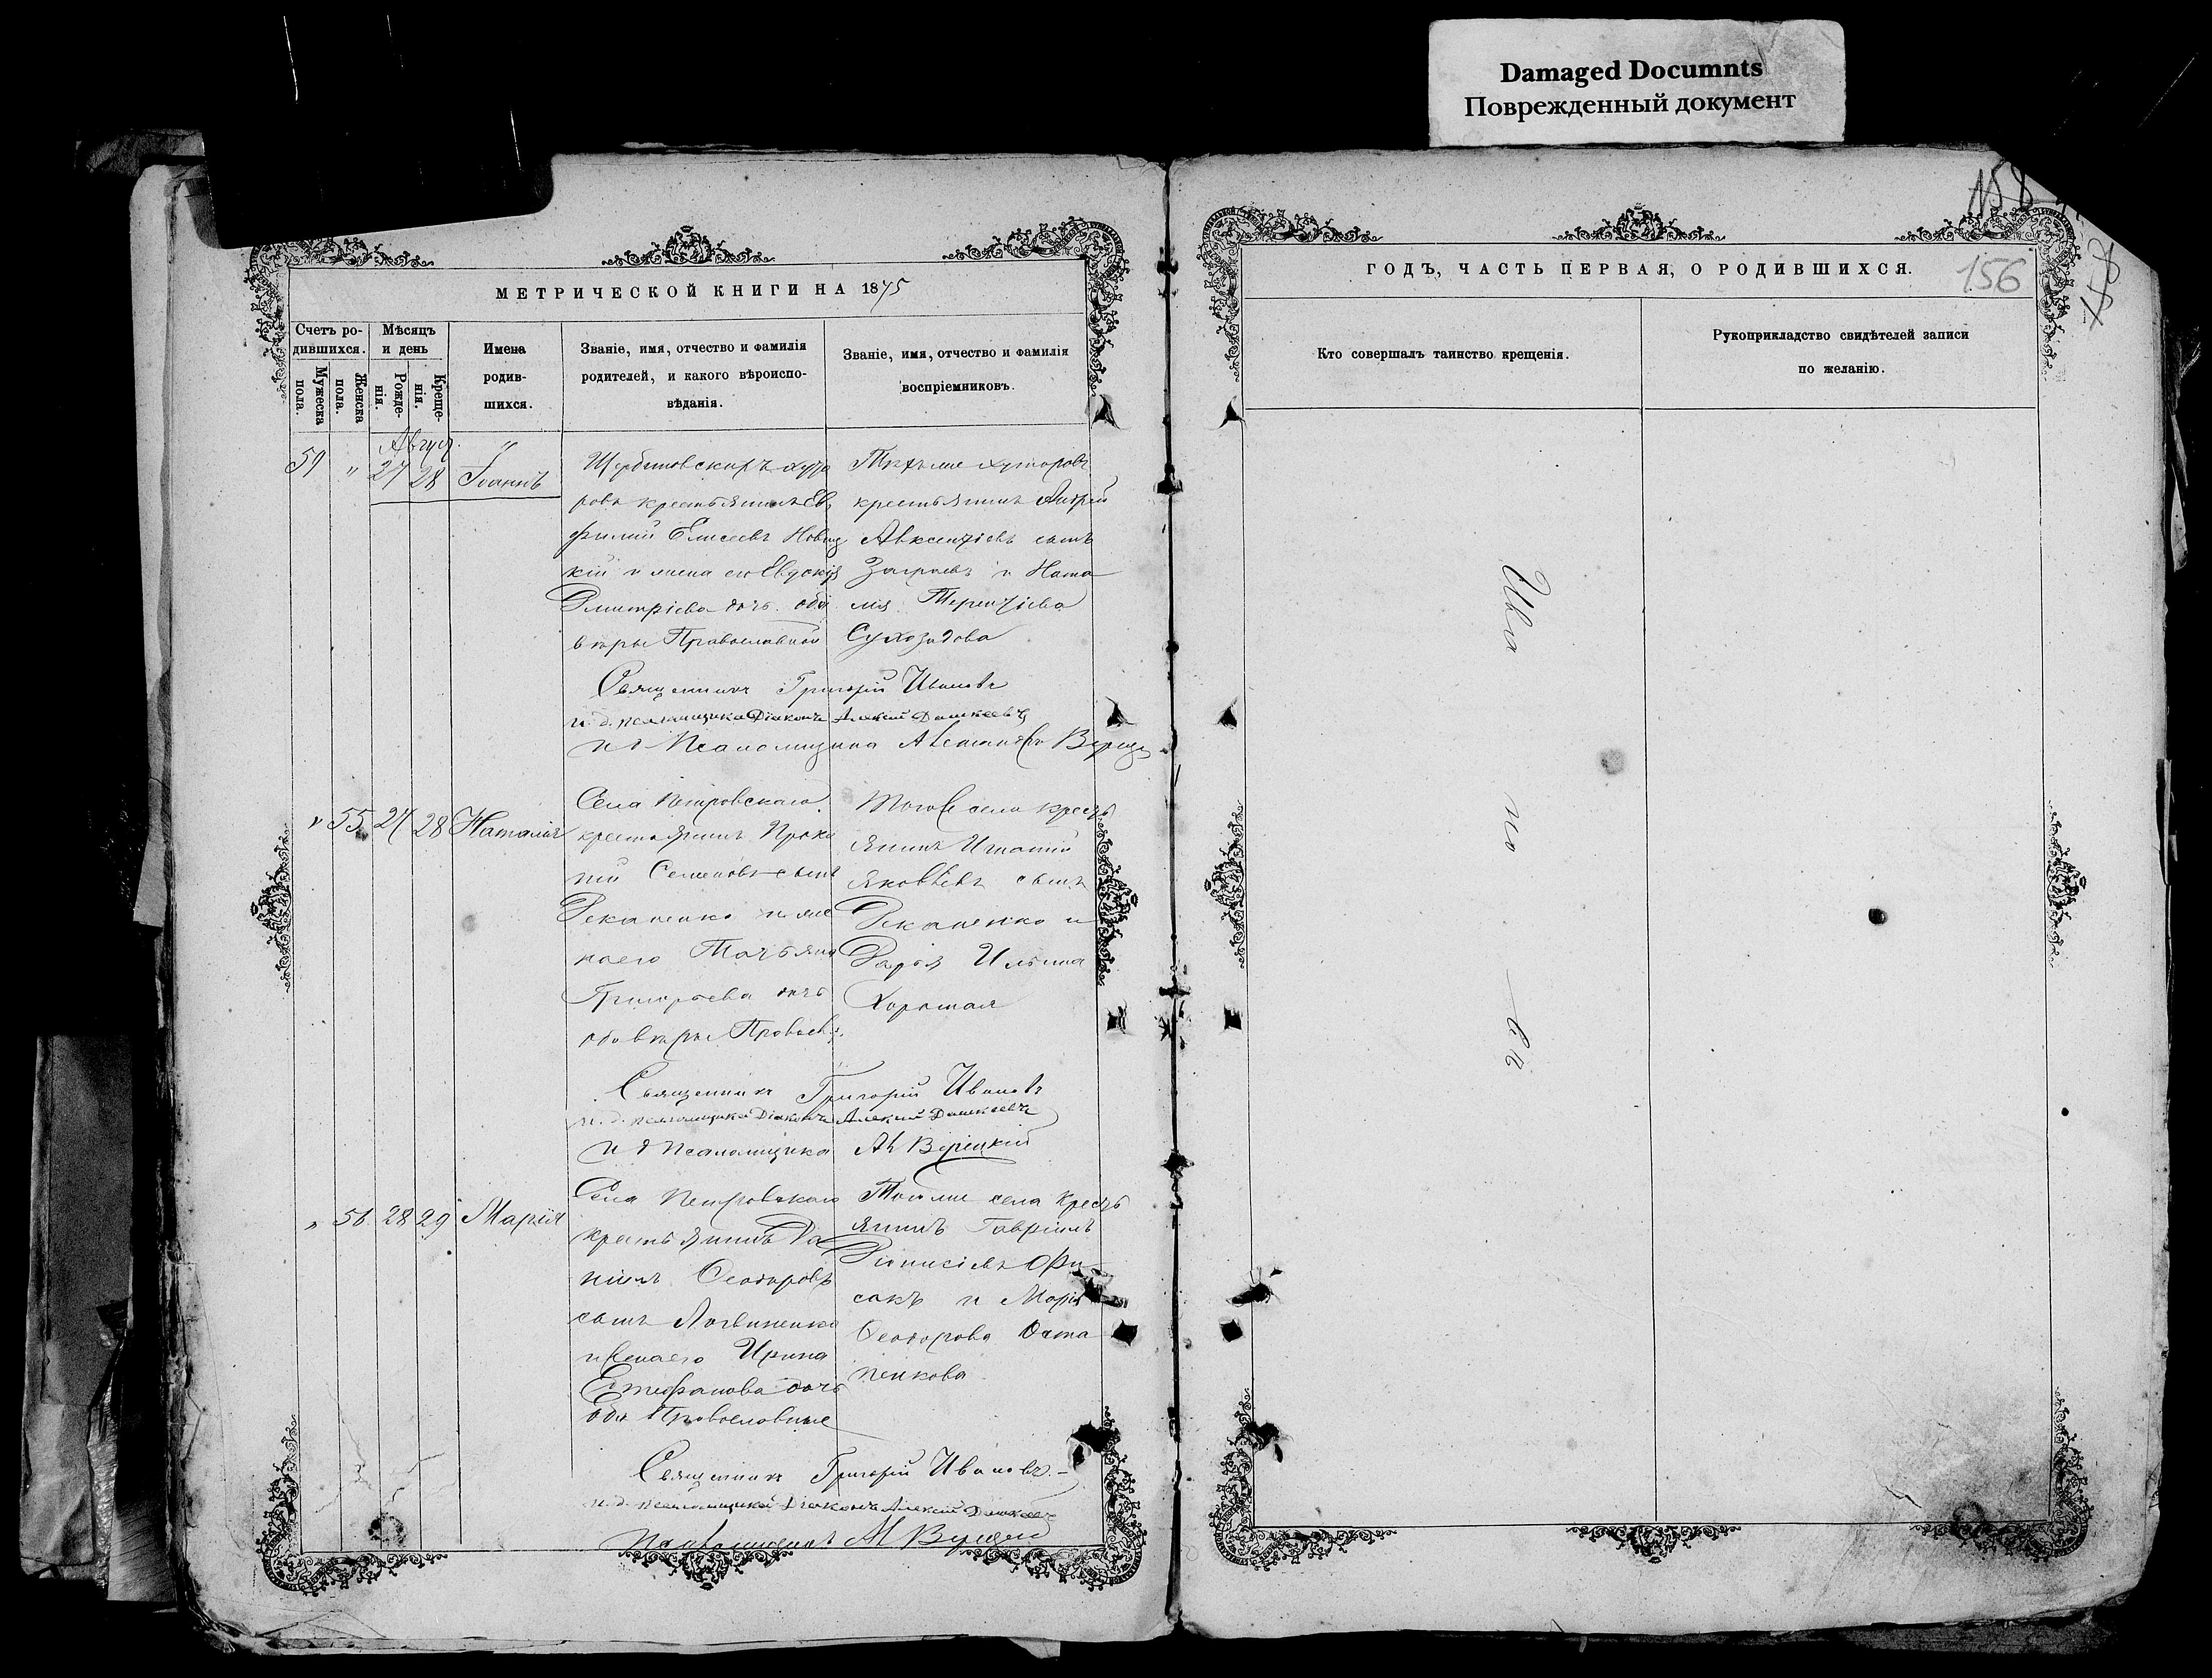 Damaged Documnts
Поврежденный документ
158
158
МЕТРИЧЕСКОЙ КНИГИ НА 1875
ГОДЪ, ЧАСТЬ ПЕРВАЯ, О РОДИВШИХСЯ.
156
Счетъ ро-
дившихся.
Мужеска
пола.
Женска
пола.
Мѣсяцъ
и день
Рожде-
нія.
Креще-
нія.
Имена
родив-
шихся.
Званіе, имя, отчество и фамилія
родителей, и какого вѣроиспо-
вѣданія.
Званіе, имя, отчество и фамилія
воспріемниковъ.
Кто совершалъ таинство крещенія.
Рукоприкладство свидѣтелей записи
по желанію.
Август.
59 " 27 28 Іоаннъ
хуто
ровъ крестьянинъ Ев
фимій Елисеевъ Новиц
кій и жена его Евдокія
Димитріева дочь. оба
вѣры Православной
Тѣхъ же хуторовъ
крестьянинъ Андрей
Авксентіевъ сынъ
и Ната
лія Терентіева
Священникъ Григорій Ивановъ
и. д. псаломщика Діаконъ Алексій
и д Псаломщика
" 55 27 28 Наталія
Села Петровскаго
крестьянинъ Проко
пій Семеновъ сынъ
Деканенко и же
на его Татьяна
Григорьева дочь
оба вѣры Правосл.
Тогоже села кресть
янинъ Игнатій
Яковлевъ сынъ
Деканенко и
Дарья Ильина
Хорошая
Священникъ Григорій Ивановъ
и. д. псаломщика Діаконъ Алексій
и д Псаломщика
" 56 28 29 Марія
Села Петровскаго
крестьянинъ Да
ніилъ Ѳеодоровъ
сынъ Логвиненко
и жена его Ирина
Естефанова дочь
оба Православные
Того же села кресть
янинъ Гавріилъ
Діонисіевъ
и Марія
Ѳеодорова Оста
пенкова
Священникъ Григорій Ивановъ
и. д. псаломщика Діаконъ Алексій